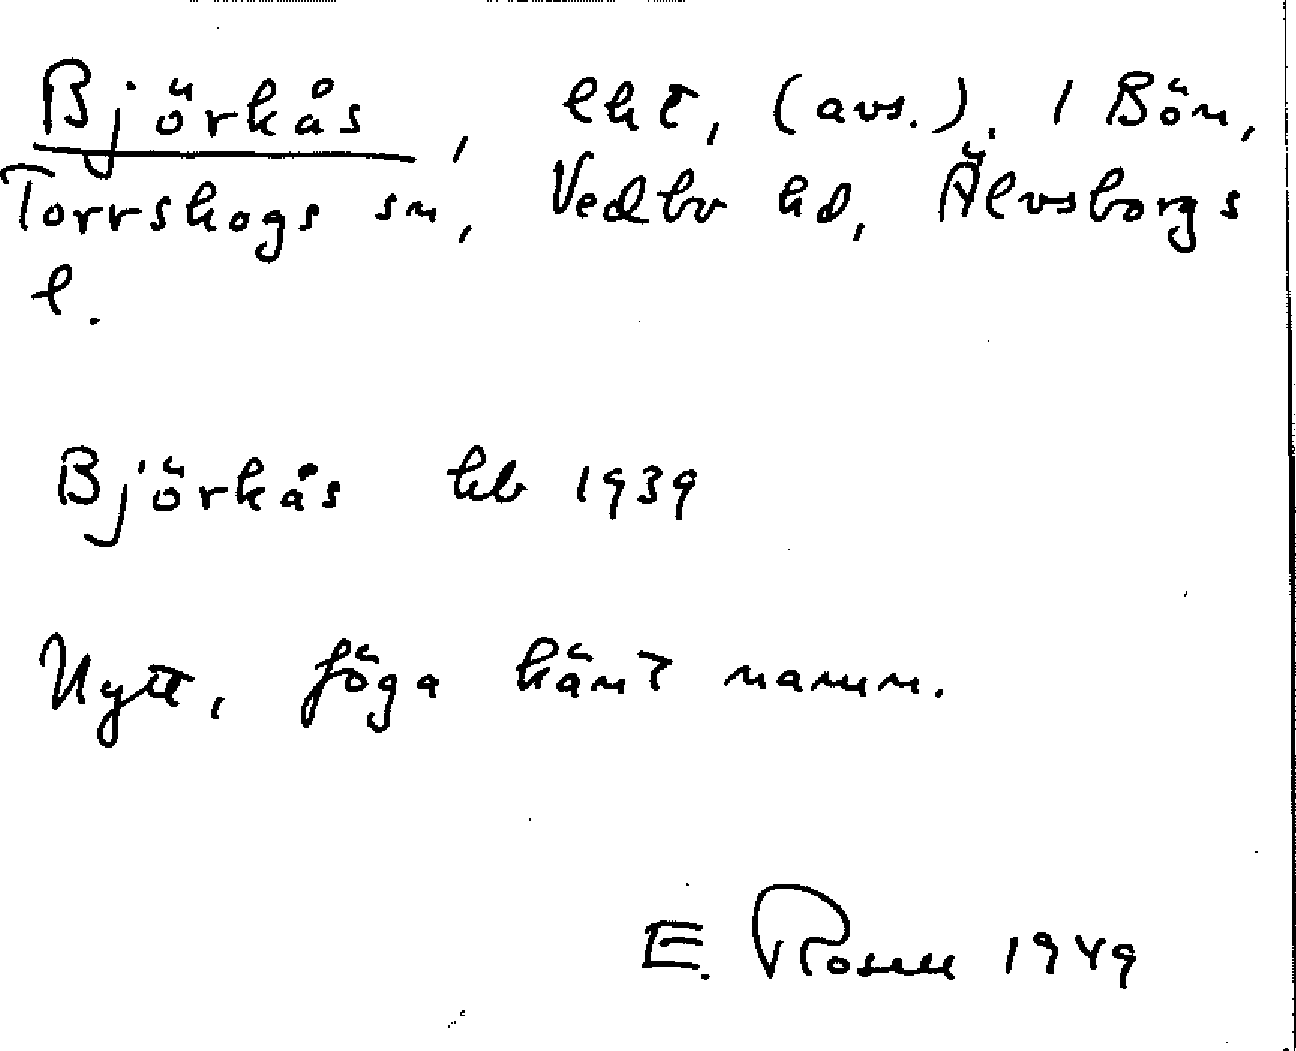 Björkås, lht, (avs.). 1 Bön,
Torrskogs sn, Vedbo hd, Älvsborgs
l.
Björkås hb 1939
Nytt, föga känt namn.
E. Rosell 1949